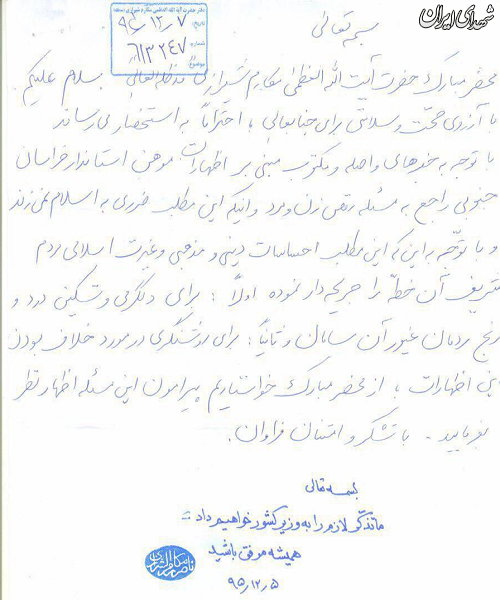 شهدای ایران
دفتر حضرت آیة الله العظمی مکارم شیرازی
تاریخ: ۹۵/۱۲/۷
شماره: ۶۱۳۲۴۷
بسمه تعالی
محضر مبارک حضرت آیت الله العظمی مکارم شیرازی مدظله العالی سلام علیکم
با آرزوی صحّت و سلامتی برای جنابعالی، احتراماً به استحضار می‌رساند
با توجه به خبرهای واصله و مکتوب مبنی بر اظهارات موهن استاندار خراسان
جنوبی راجع به مسئله رقص زن و مرد و اینکه این مطلب ضرری به اسلام نمی‌زند
و با توجّه به این که این مطلب احساسات دینی و مذهبی و غیرت اسلامی مردم
شریف آن خطّه را جریحه‌دار نموده اولاً: برای دلگرمی و تسکین درد و
رنج مردمان غیور آن سامان و ثانیاً: برای روشنگری در مورد خلاف بودن
این اظهارات، از محضر مبارک خواستاریم پیرامون این مسئله اظهار نظر
بفرمایید. با تشکر و امتنان فراوان.
بسمه تعالی
ما تذکر لازم را به وزیر کشور خواهیم داد
همیشه موفق باشید
ناصر مکارم الشیرازی
۹۵/۱۲/۵